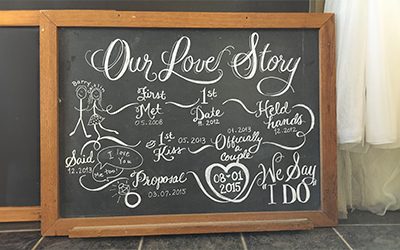 Our Love Story
Barry
First Met
05.2008
1st Date
11.2012
Held hands
12.2012
01.2013
Officially a couple
05.2013
1st Kiss
Said
12.2013
I love You
me too!
Proposal
03.07.2015
08-01
2015
We Say
"I DO"